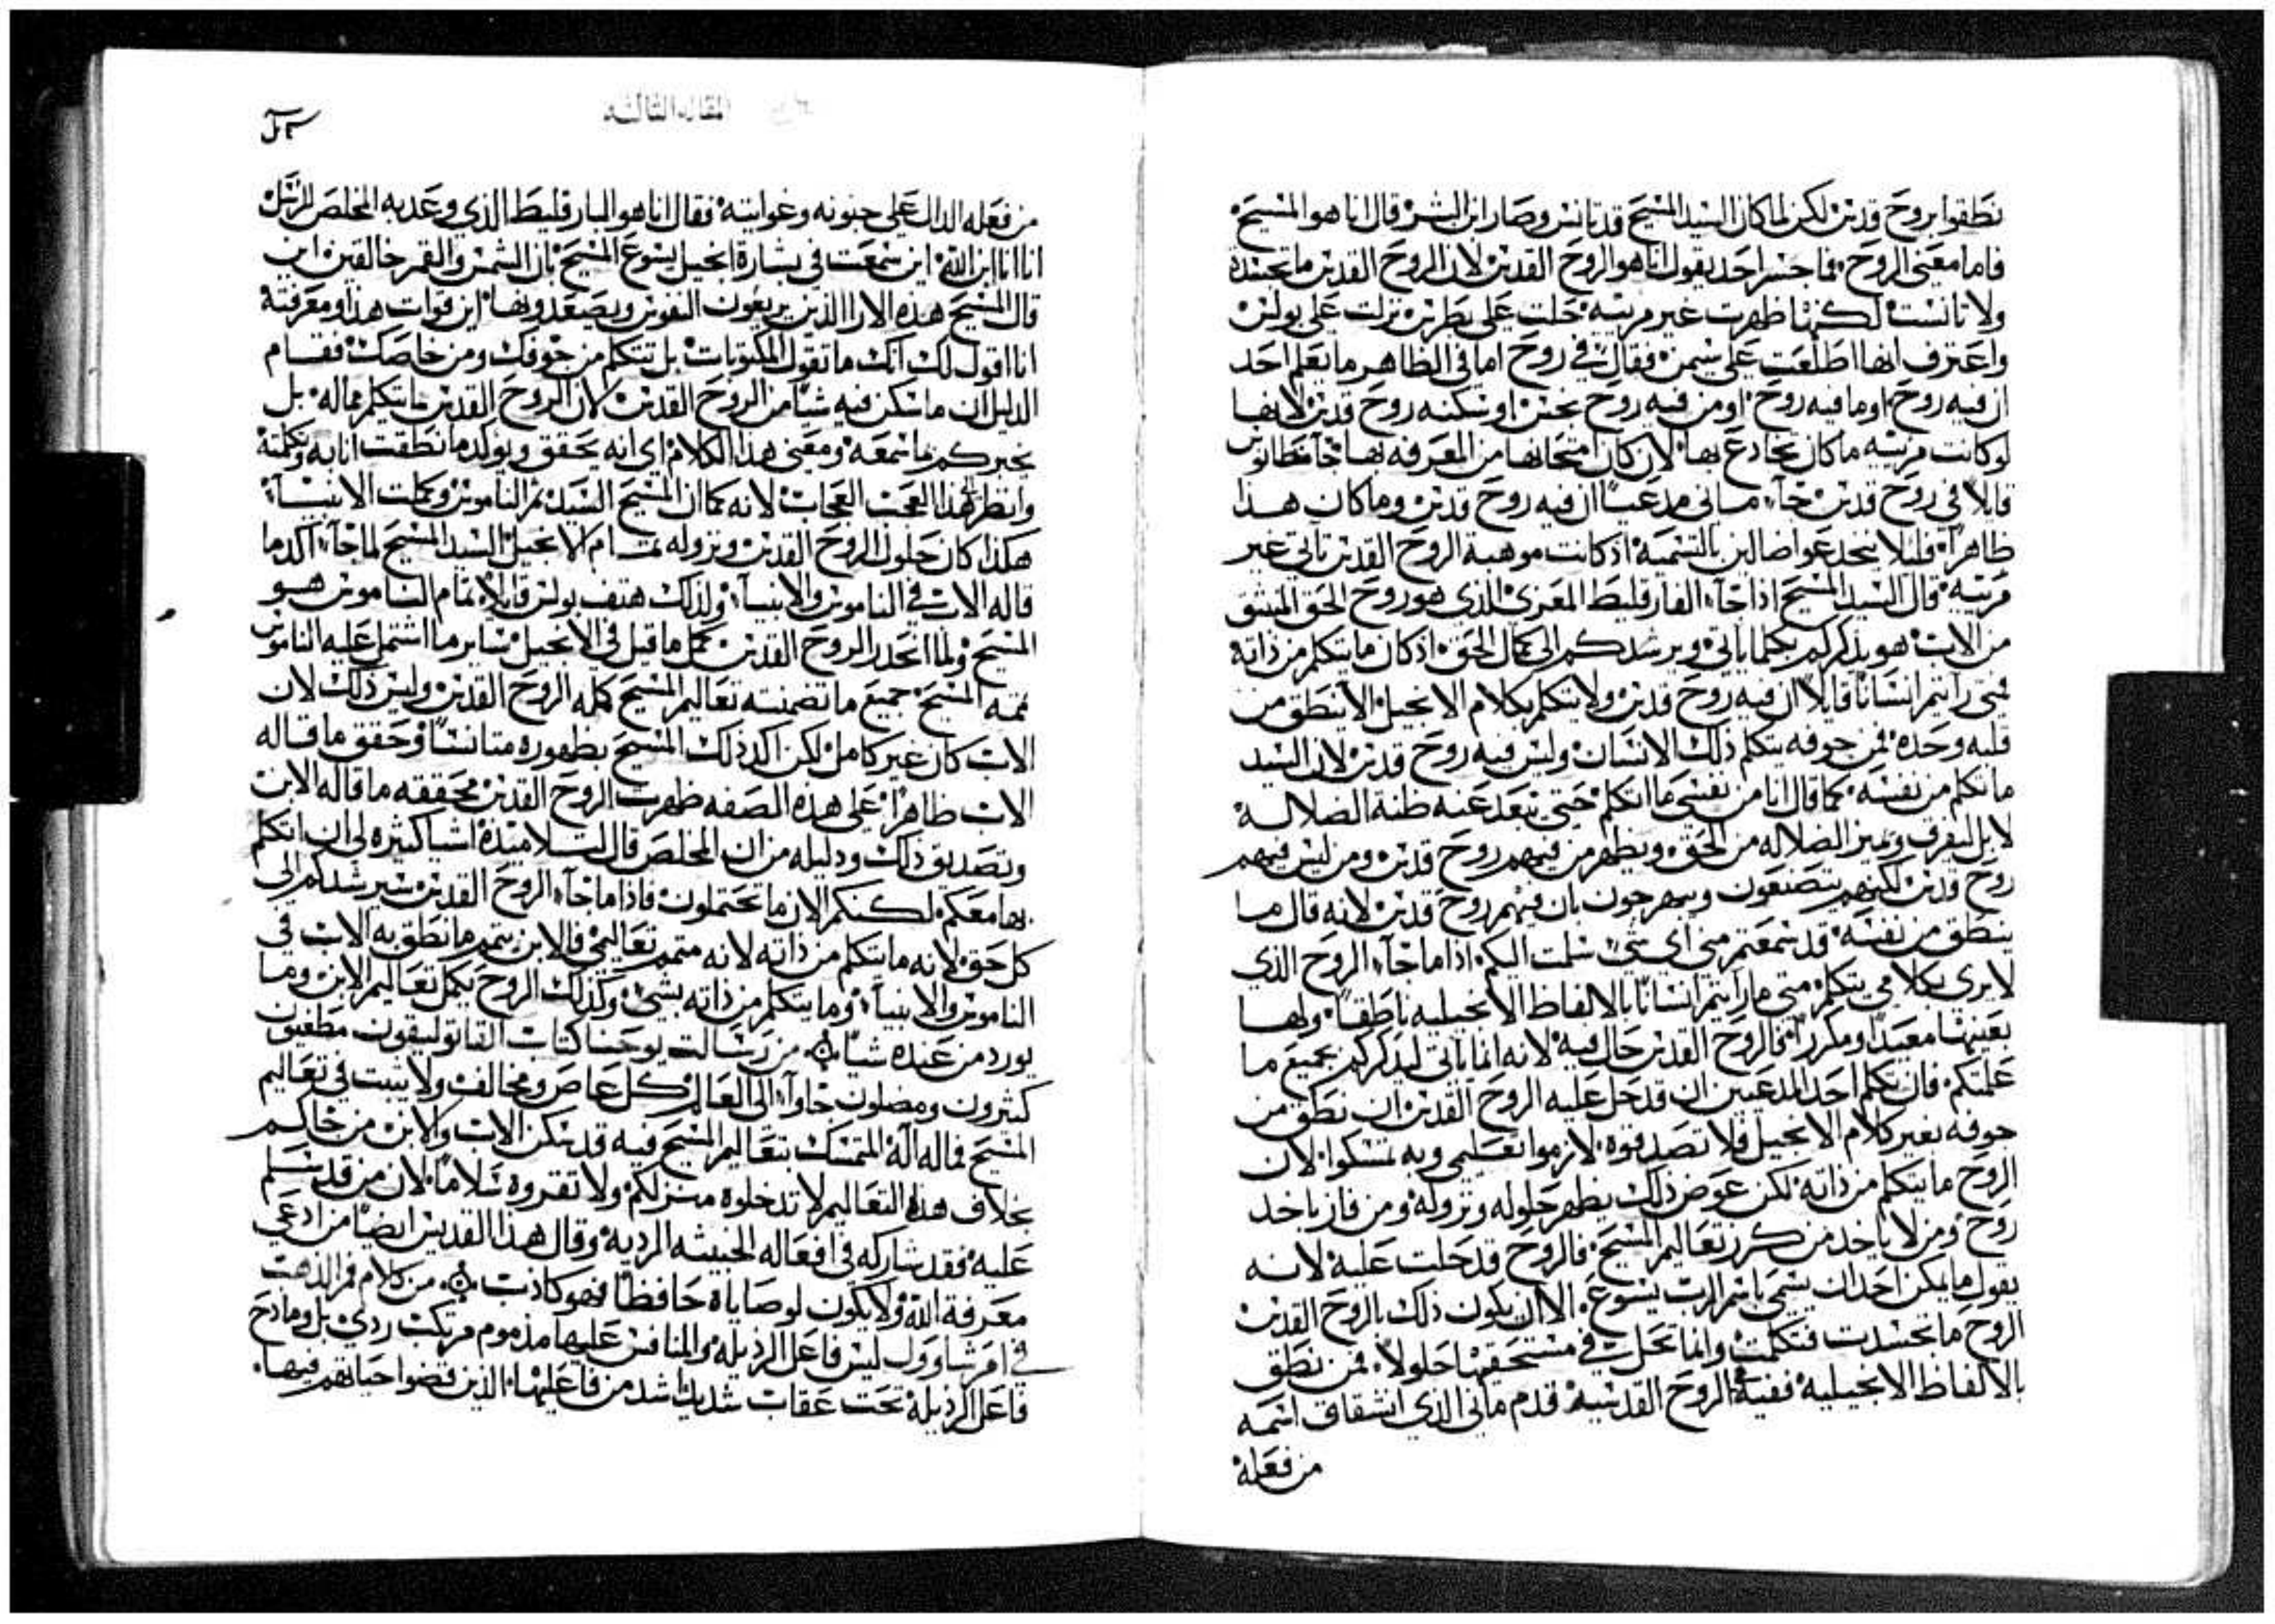 نطقوا بروح قدس لكن لما كان السيد المسيح قد تانس وصار ابن البشر قال انا هو المسيح
فاما معنى الروح فما جسر احد يقول انا هو الروح القدس لان الروح القدس ما تجسدة
ولا تانست لكنها ظهرت غير مريه حلت على بطرس نزلت على بولس
واعترف انها اطلعت على سيمن فقال في روح اما في الظاهر ما يعلم احد
ان فيه روح او ما فيه روح او من فيه روح نجس او تسكنه روح قدس لانها
لو كانت مريه ما كان يخادع بها لان كان امتحانها من المعرفه بها جا منطانوس
قايلا في روح قدس جاء ماني مدعيا ان فيه روح قدس وما كان هذا
ظاهرا فليلا ينخدعوا ضالين بالتسميه اذ كانت موهبة الروح القدس تاتي غير
مريه قال السيد المسيح اذا جاء الفارقليط المعزي الذي هو روح الحق المنبثق
من الاب هو يذكركم بكلما ياتي ويرشدكم الى كمال الحق اذ كان ما يتكلم من ذاته
متى رايتم انسانا قايلا ان فيه روح قدس ولا يتكلم بكلام الانجيل الا ينطق من
قلبه وحده فمن جوفه يتكلم ذلك الانسان وليس فيه روح قدس لان السيد
ما تكلم من نفسه كما قال انا من نفسي ما اتكلم حتى تبعد عنه ظنة الضلاله
لا بل ليفرق وتميز الضلاله من الحق ويظهر من فيهم روح قدس ومن ليس فيهم
روح قدس لكنهم يتصنعون ويبهرجون بان فيهم روح قدس لانه قال ما
ينطق من نفسه قد سمعتم مني اي شي سلمت اليكم اذا ما جاء الروح الذي
لا يرى بكلامي يتكلم متى ما رايتم انسانا بالالفاظ الانجيليه ناطقا ولها
بعينها معيدا ومكررا فالروح القدس حال فيه لانه انما ياتي ليذكركم بجميع ما
علمتكم فان تكلم احد المدعيين ان قد حل عليه الروح القدس ان نطق من
جوفه بغير كلام الانجيل فلا تصدقوه لازموا تعليمي وبه تمسكوا لان
الروح ما يتكلم من ذاته لكن عوض ذلك يظهر حلوله ونزوله ومن فاز ياخد
روح ومن لا ياخد من كرز تعاليم المسيح فالروح قد حلت عليه لانه
يقول ما يمكن احد ان يسمى باسم الرب يسوع الا ان يكون ذلك بالروح القدس
الروح ما تجسدت فتكلمت وانما تحل في مستحقيها حلولا فمن نطق
بالالفاظ الانجيليه ففيه الروح القدسيه قدم ماني الذي اشتقاق اسمه
من فعله
من فعله الدال على جنونه وغوايته فقال انا هو البارقليط الذي وعد به المخلص للرسل
انا انا ابن الله اين سمعت في بشارة انجيل يسوع المسيح بان الشمس والقمر خالقين اين
قال المسيح هذه الارا الذين يريعون النفوس ويصعدونها اين قوات هذا ومعرفته
انا اقول لك انك ما تقول المكتوبات بل تتكلم من جوفك ومن خاصك فقام
الدليل ان ما تسكن فيه شيا من الروح القدس لان الروح القدس ما يتكلم مماله بل
يخبركم بما سمعه ومعنى هذا الكلام اي انه يحقق ويوكد ما نطقت انا به وتكلمته
وانظر لهذا العجب العجاب لانه كما ان المسيح السيد تمم الناموس وكملت الانبياء
هكذا كان حلول الروح القدس ونزوله تمام الانجيل السيد المسيح لما جاء اكد ما
قاله الاب في الناموس والانبياء ولذلك هتف بولس قايلا تمام الناموس هو
المسيح ولما انحدر الروح القدس كمل ما قيل في الانجيل ساير ما اشتمل عليه الناموس
تممه المسيح جميع ما تضمنته تعاليم المسيح كمله الروح القدس وليس ذلك لان
الاب كان غير كامل لكن اكد ذلك المسيح بظهوره متانسا وحقق ما قاله
الاب ظاهرا على هذه الصفه ظهرت الروح القدس محققه ما قاله الابن
وتصديق ذلك ودليله من ان المخلص قال لتلاميذه اشيا كثيره لي ان اتكلم
بها معكم لكنكم الان ما تحتملون فاذا ما جاء الروح القدس سيرشدكم الى
كل حق لانه ما يتكلم من ذاته لانه متمم تعاليمي فالابن يتمم ما نطق به الاب في
الناموس والانبياء وما يتكلم من ذاته بشي وكذلك الروح يكمل تعاليم الابن وما
يورد من عنده شيا من رسالت يوحنا كتاب القاتوليقون مطغيون
كثيرون ومضلون جاوا الى العالم كل عاص ومخالف ولا يثبت في تعاليم
المسيح فما له اله المتمسك بتعاليم المسيح فيه قد يسكن الاب والابن من جاكم
بخلاف هذه التعاليم لا تدخلوه منزلكم ولا تقروه سلاما لان من قد سلم
عليه فقد شاركه في افعاله الخبيثه الرديه وقال هذا القديس ايضا من ادعى
معرفة الله ولا يكون لوصاياه حافظا فهو كاذب من كلام فم الذهب
في امر شاوول ليس فاعل الرذيله والمنافس عليها مذموم مرتكب ردي بل ومادح
فاعل الرذيله تحت عقاب شديد اشد من فاعليها الذين قضوا حياتهم فيها